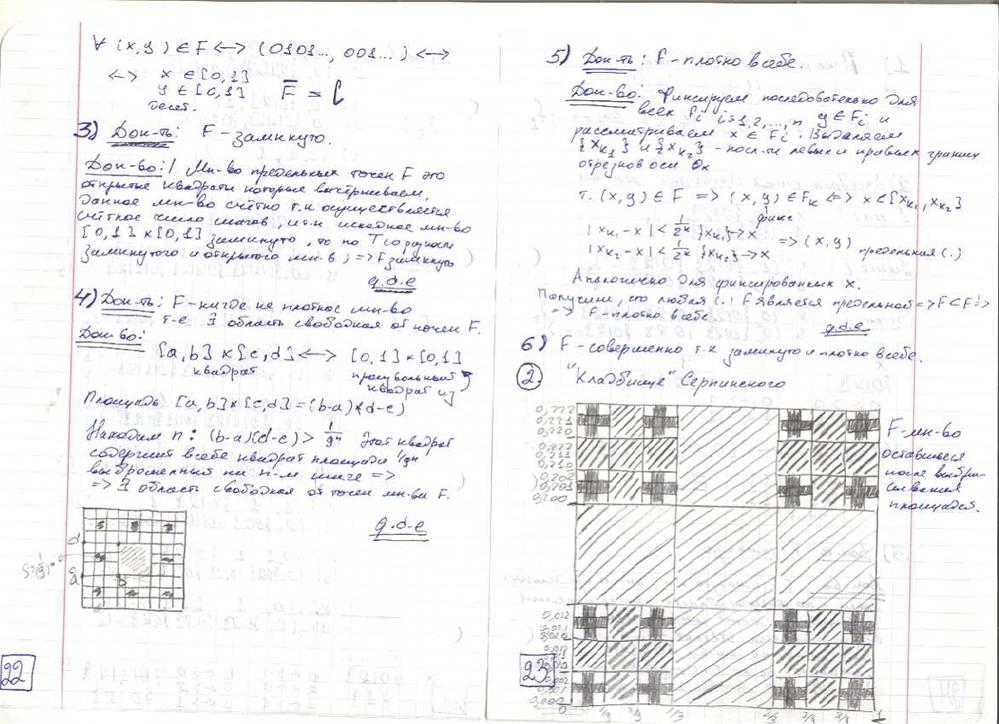 ∀ (x,y) ∈ F <-> (0101..., 001...) <->
<-> x ∈ [0,1]
y ∈ [0,1]
F̅ = C
3) Док-ть: F - замкнуто.
Док-во: Мн-во предельных точек F это
открытые квадраты которые выстриваем,
данное мн-во счётно т.к осуществляется
счётное число шагов, и т.к исходное мн-во
[0,1]×[0,1] замкнуто, то по Т (о разности
замкнутого и открытого мн-в) => F замкнуто
q.d.e
4) Док-ть: F - нигде не плотное мн-во
т-е ∃ область свободная от точек F.
Док-во:
[a,b]×[c,d] <-> [0,1]×[0,1]
квадрат произвольный квадрат из
Площадь [a,b]×[c,d] = (b-a)(d-c)
Находим n: (b-a)(d-c) > 1/9ⁿ Этот квадрат
содержит в себе квадрат площади 1/9ⁿ
выброшенный на n-м шаге =>
=> ∃ область свободная от точек мн-ва F.
q.d.e
d
c
a
b
22
5) Док-ть: F - плотно в себе.
Док-во: Фиксируем последовательно для
всех Fi i=1,2,...,n y ∈ Fi и
рассматриваем x ∈ Fi. Выделяем
{xk₁} и {xk₂} - посл-ти левых и правых границ
отрезков оси Ox
т. (x,y) ∈ F => (x,y) ∈ Fk <=> x ∈ [xk₁, xk₂]
фикс
|xk₁-x| < 1/2ᵏ {xk₁} -> x
|xk₁-x| < 1/2ᵏ {xk₂} -> x
=> (x,y) предельная (.)
Аналогично для фиксированных x.
Получили, что любая (.) F является предельной => F ⊂ F' =>
=> F - плотно в себе.
q.d.e
6) F - совершенно, т.к замкнуто и плотно в себе.
2. "Кладбище" Серпинского
0,222
0,221
0,220
0,212
0,211
0,210
0,202
0,201
0,200
F - мн-во
оставшееся
после выбра-
сывания
площадей.
0,012
0,011
0,010
0,002
0,001
0,000
0 1/9 2/9 1/3 2/3 7/9 8/9 1
23